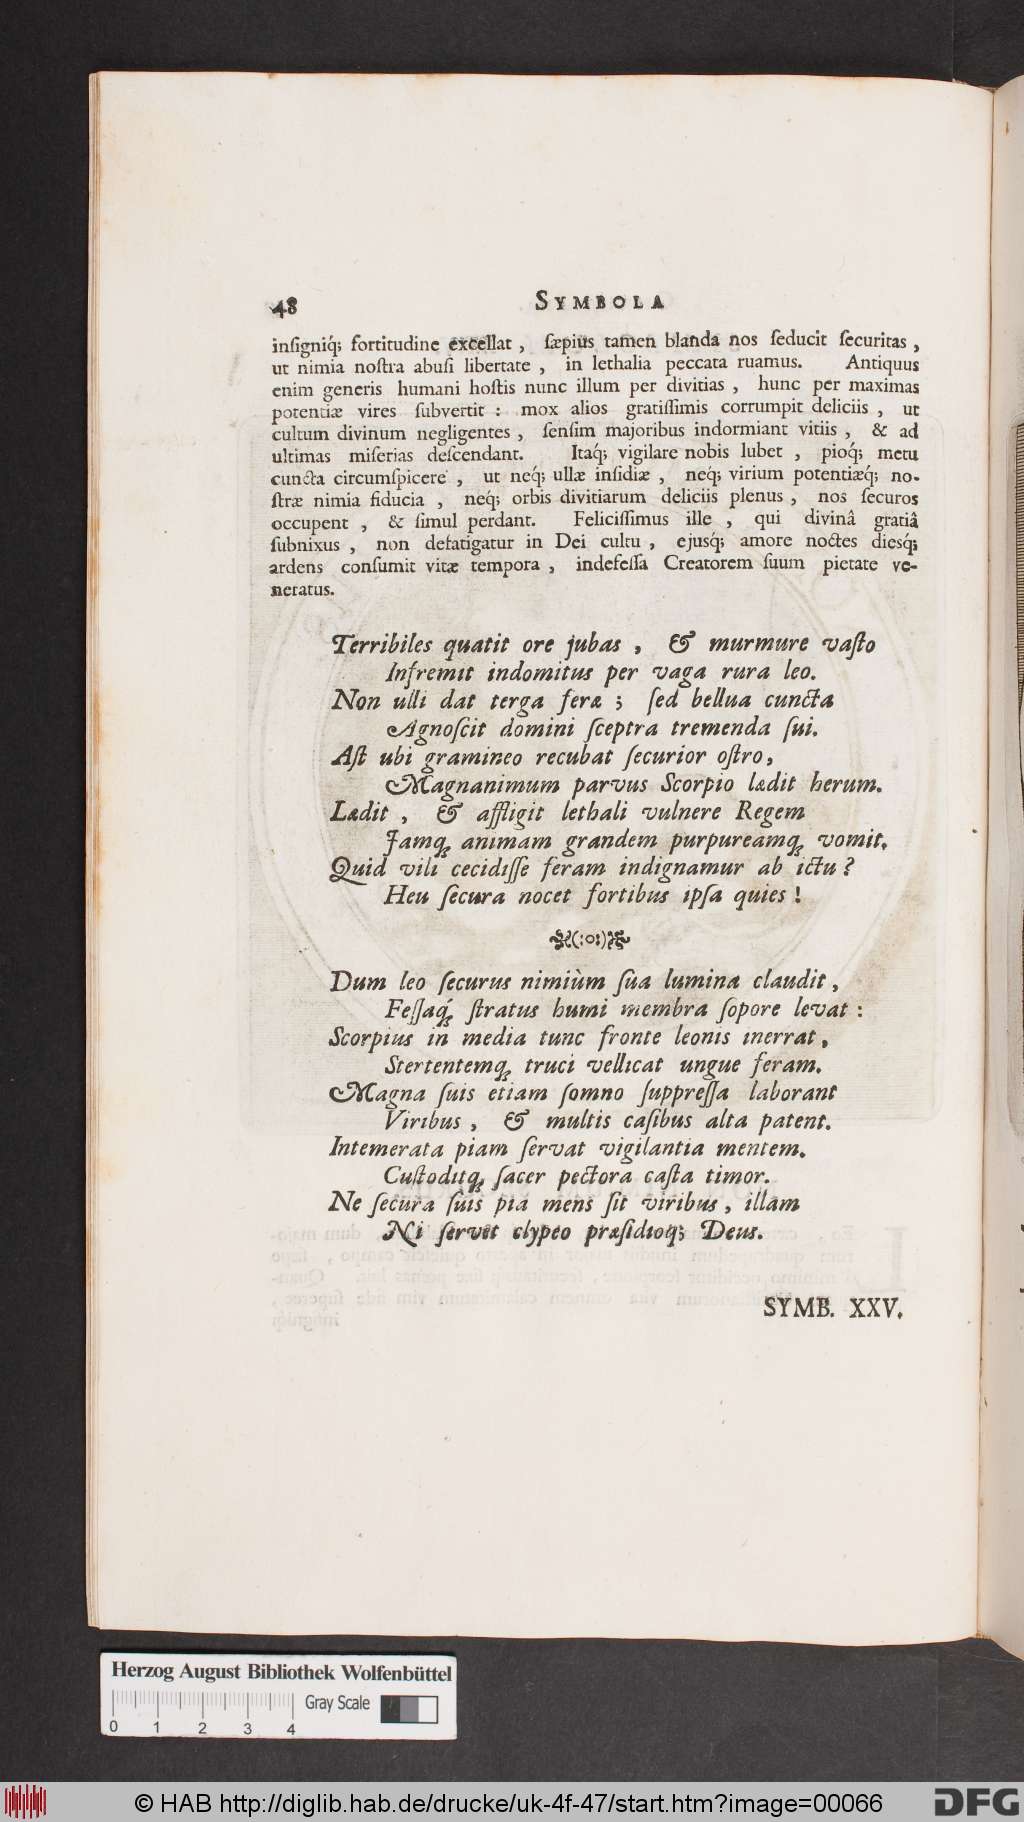 48 SYMBOLA
inſigniq́; fortitudine excellat, ſæpius tamen blanda nos ſeducit ſecuritas,
ut nimia noſtra abuſi libertate, in lethalia peccata ruamus. Antiquus
enim generis humani hoſtis nunc illum per divitias, hunc per maximas
potentiæ vires ſubvertit: mox alios gratiſſimis corrumpit deliciis, ut
cultum divinum negligentes, ſenſim majoribus indormiant vitiis, & ad
ultimas miſerias deſcendant. Itaq́; vigilare nobis lubet, pioq́; metu
cuncta circumſpicere, ut neq́; ullæ inſidiæ, neq́; virium potentiæq́; no-
ſtræ nimia fiducia, neq́; orbis divitiarum deliciis plenus, nos ſecuros
occupent, & ſimul perdant. Feliciſſimus ille, qui divinâ gratiâ
ſubnixus, non defatigatur in Dei cultu, ejusq́; amore noctes diesq́;
ardens conſumit vitæ tempora, indefeſſa Creatorem ſuum pietate ve-
neratus.
Terribiles quatit ore jubas, & murmure vaſto
Infremit indomitus per vaga rura leo.
Non ulli dat terga feræ; ſed bellua cuncta
Agnoſcit domini ſceptra tremenda ſui.
Aſt ubi gramineo recubat ſecurior oſtro,
Magnanimum parvus Scorpio lædit herum.
Lædit, & affligit lethali vulnere Regem
Jamq; animam grandem purpureamq; vomit.
Quid vili cecidiſſe feram indignamur ab ictu?
Heu ſecura nocet fortibus ipſa quies!
(:o:)
Dum leo ſecurus nimiùm ſua lumina claudit,
Feſſaq́; ſtratus humi membra ſopore levat:
Scorpius in media tunc fronte leonis inerrat,
Stertentemq; truci vellicat ungue feram.
Magna ſuis etiam ſomno ſuppreſſa laborant
Viribus, & multis caſibus alta patent.
Intemerata piam ſervat vigilantia mentem.
Cuſtoditq; ſacer pectora caſta timor.
Ne ſecura ſuis pia mens ſit viribus, illam
Ni ſervet clypeo præſidioq́; Deus.
SYMB. XXV.
Herzog August Bibliothek Wolfenbüttel
Gray Scale
0 1 2 3 4
© HAB http://diglib.hab.de/drucke/uk-4f-47/start.htm?image=00066
DFG